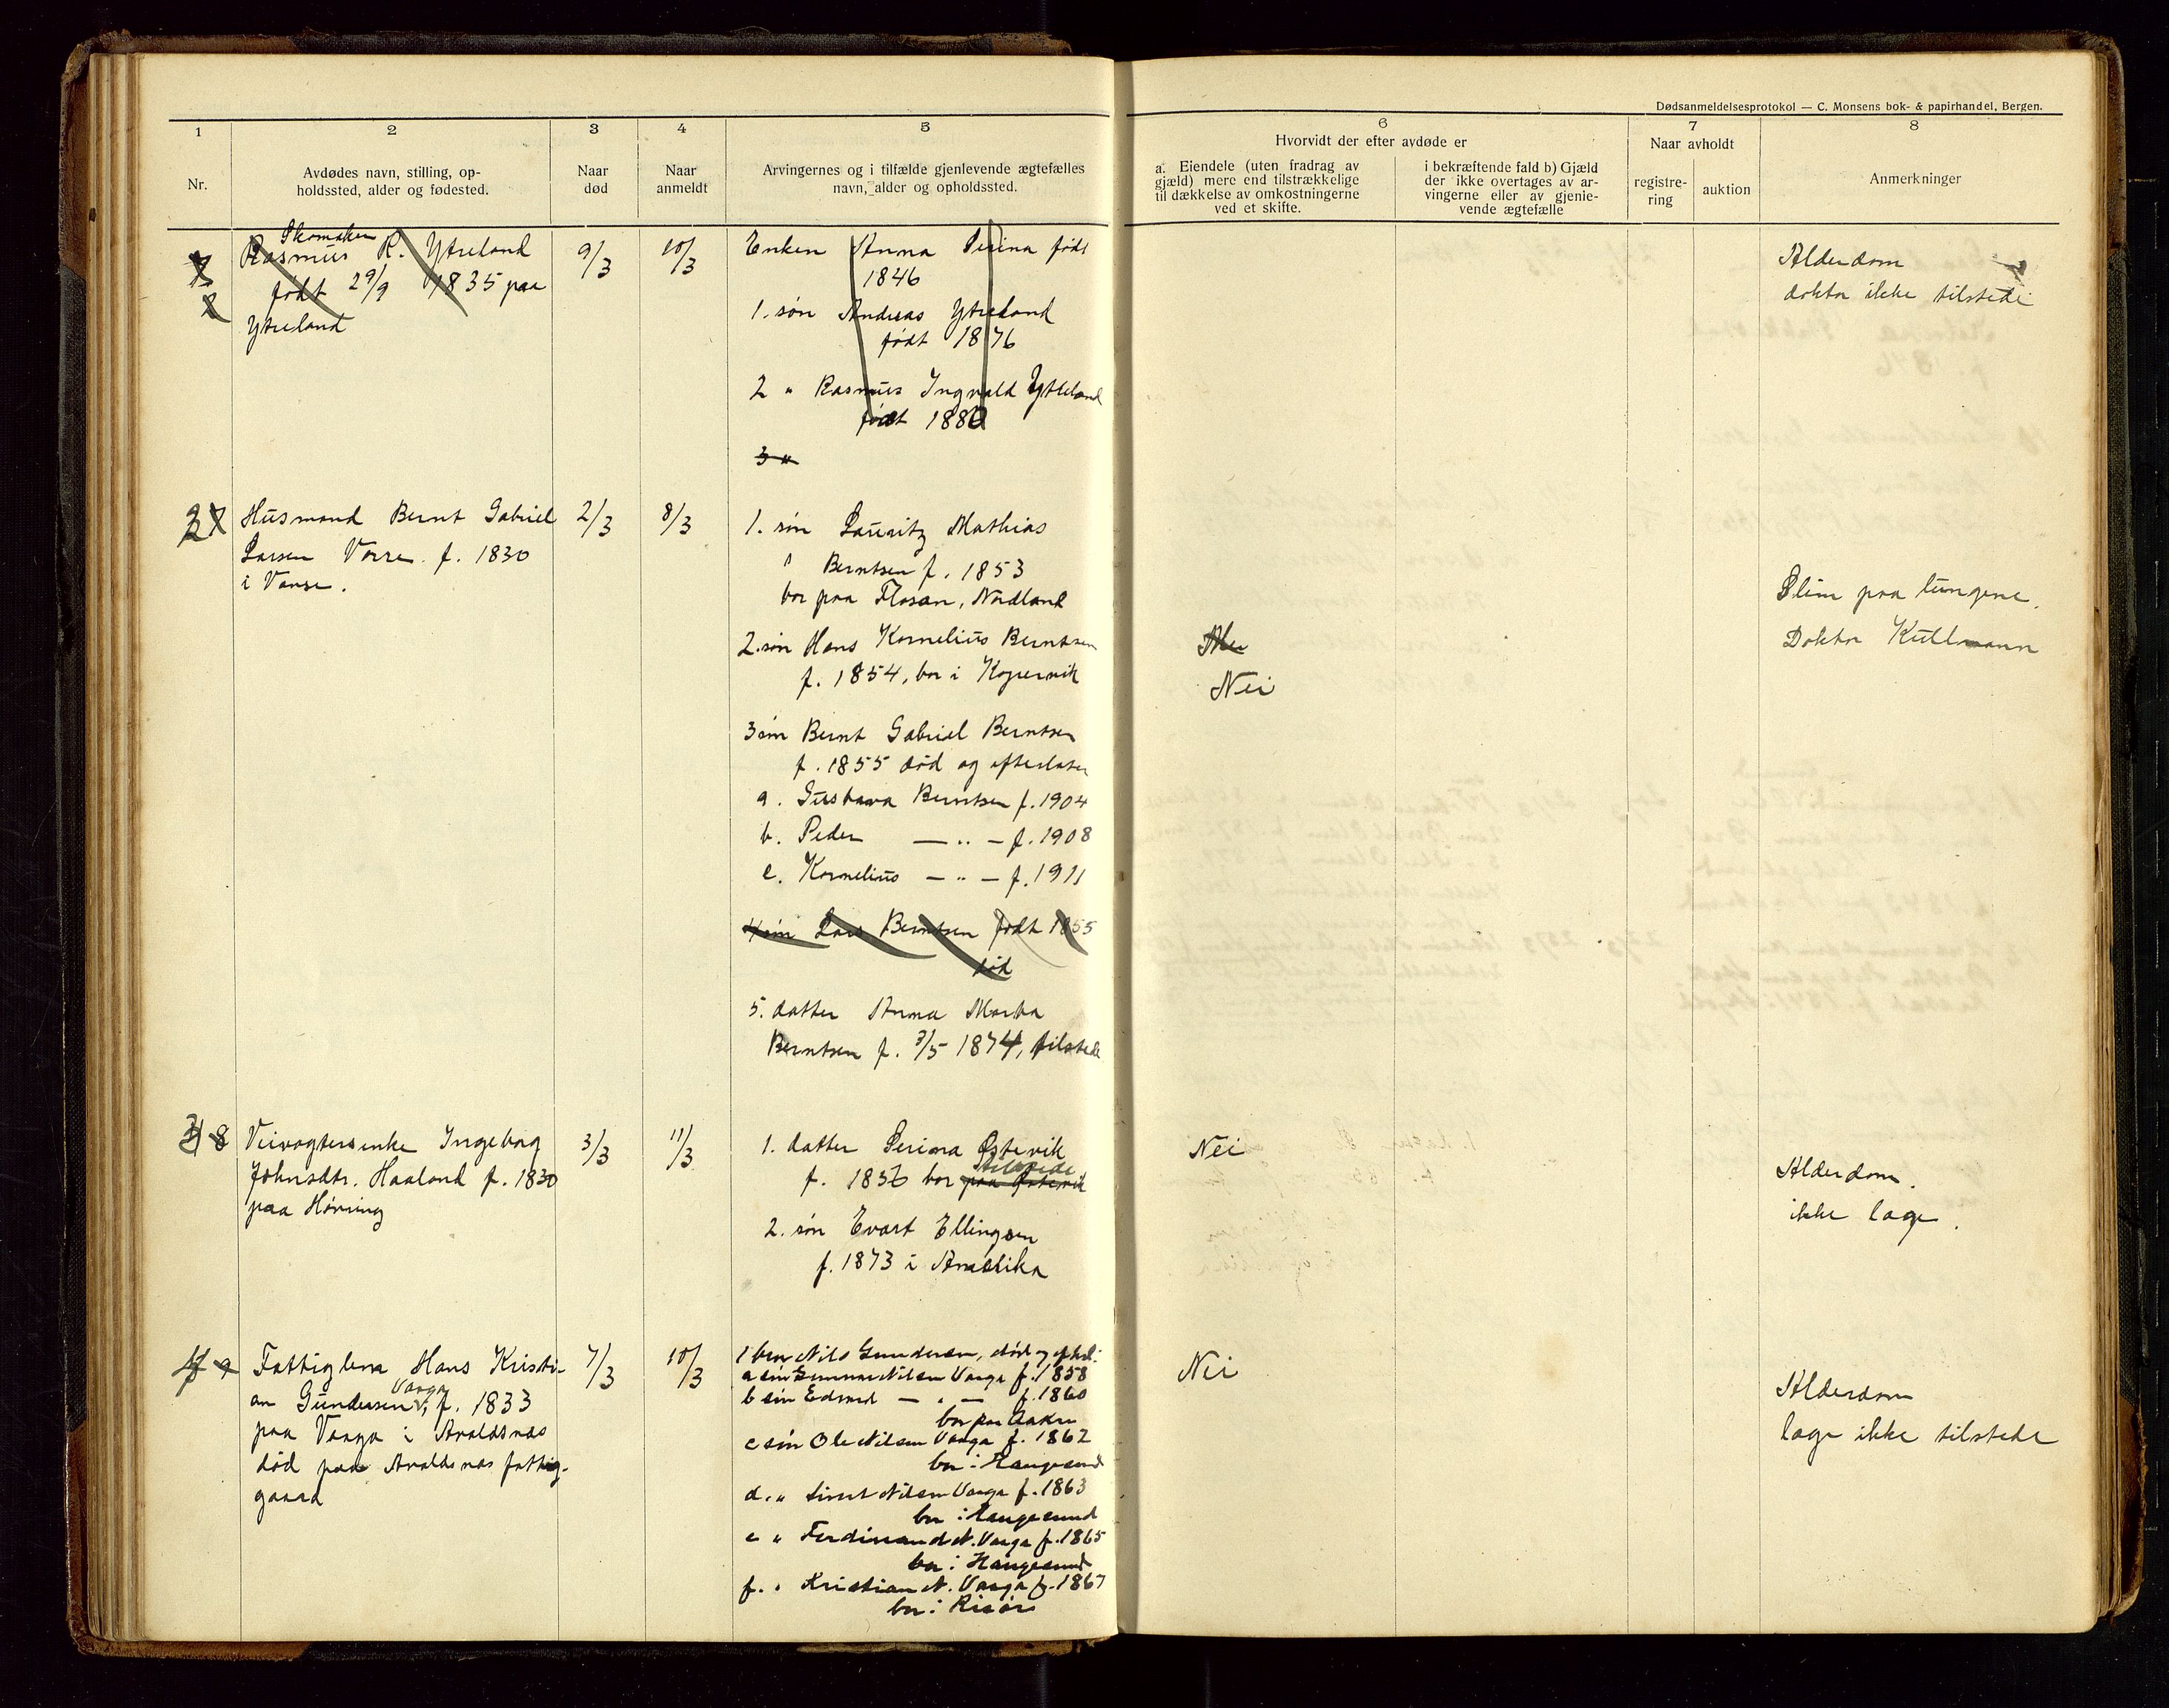 Dødsanmeldelsesprotokol — C. Monsens bok- & papirhandel, Bergen.
1
2
3
4
5
6
7
8
Nr.
Avdødes navn, stilling, op-
holdssted, alder og fødested.
Naar
død
Naar
anmeldt
Arvingernes og i tilfælde gjenlevende ægtefælles
navn, alder og opholdssted.
Hvorvidt der efter avdøde er
a. Eiendele (uten fradrag av
gjæld) mere end tilstrækkelige
til dækkelse av omkostningerne
ved et skifte.
i bekræftende fald b) Gjæld
der ikke overtages av ar-
vingerne eller av gjenle-
vende ægtefælle
Naar avholdt
registre-
ring
auktion
Anmerkninger
Skomaker
Rasmus R. Ytreland
født 29/9 1835 paa
Ytreland
9/3
10/3
Enken Anna Serina født
1846
1. søn Andreas Ytreland
født 1876
2 " Rasmus Ingvald Ytreland
født 1880
3 "
Alderdom
doktor ikke tilstede
2
Husmand Bernt Gabriel
Larsen Vorre. f. 1830
i Vanse.
2/3
8/3
1. søn Lauritz Mathias
Berntsen f. 1853
bor paa Flosan, Nordland
2. søn Hans Kornelius Berntsen
f. 1854, bor i Kopervik
3 søn Bernt Gabriel Berntsen
f. 1855 død og efterlater
a. Gustava Berntsen f. 1904
b. Peder — " — f. 1908
c. Kornelius — " — f. 1911
4 søn Lars Berntsen født 1855
død
5. datter Anna Marta
Berntsen f. 3/5 1874, tilstede
Nei
Slim paa lungene.
Doktor Kullmann
3 8
Veivogtersenke Ingeborg
Johnsdtr. Haaland f. 1830
paa Hörning
3/3
11/3
1. datter Serina Østevik
tilstede
f. 1856 bor paa Østevik
2. søn Evart Ellingsen
f. 1873 i Amerika
Nei
Alderdom.
ikke læge.
4 9
Fattiglem Hans Kristi-
an Gundersen Vaaga, f. 1833
paa Vaaga i Avaldsnæs
død paa Avaldsnæs fattig-
gaard
7/3
10/3
1 bror Nils Gundersen, død og efterl.:
a søn Gunnar Nilsen Vaaga f. 1858
b søn Edvard — " — f. 1860
bor paa Aakre
c søn Ole Nilsen Vaaga f. 1862
bor i Haugesund
d. " Sivert Nilsen Vaaga f. 1863
bor i Haugesund
e " Ferdinand N. Vaaga f. 1865
bor i Haugesund
f. " Kristian N. Vaaga f. 1867
bor i Risør
Nei
Alderdom
læge ikke tilstede